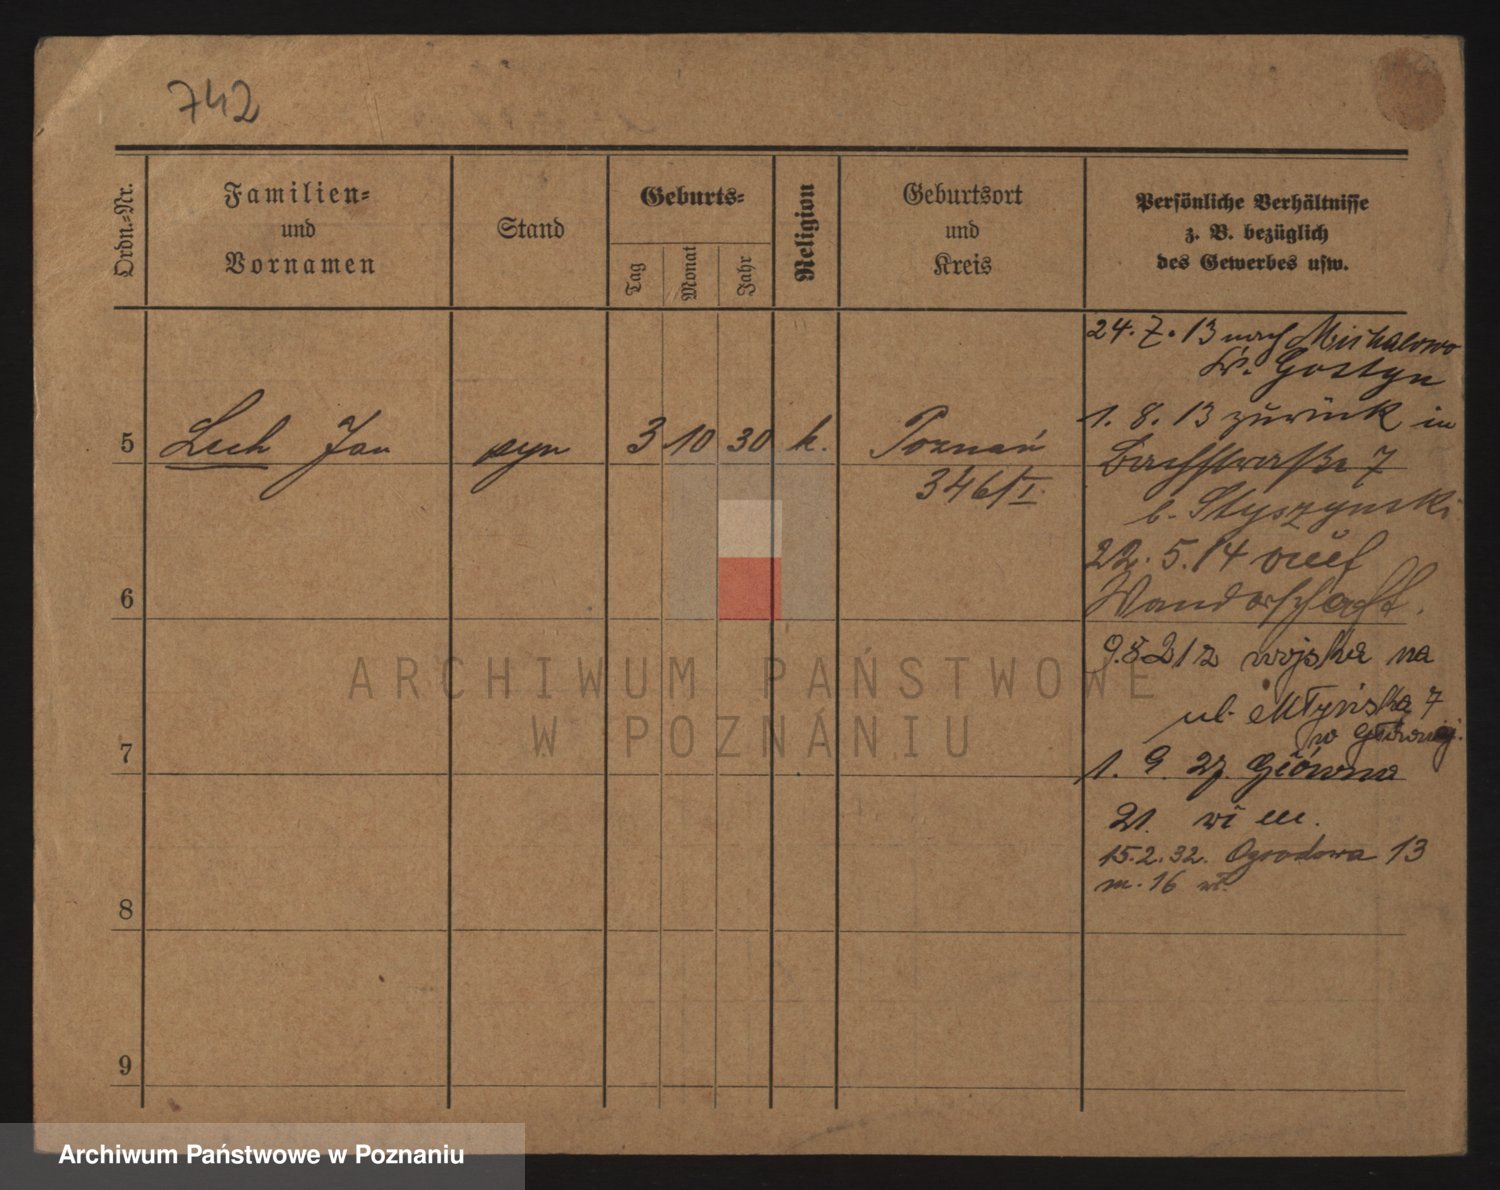 742
Ordn.-Nr.
Familien-
und
Vornamen
Stand
Geburts-
Tag
Monat
Jahr
Religion
Geburtsort
und
Kreis
Persönliche Verhältnisse
z. B. bezüglich
des Gewerbes usw.
24. 7. 13 nach Michalowo
Kr. Gostyn
1. 8. 13 zurück in
5 Lech Jan syn 3 10 30 k. Poznań
Bachstraße 7
346/I.
b. Styszynski
22. 5. 14 auf
Wanderschaft.
6
9.8 21 z wojska na
ul. Młyńska 7
w Głównej.
7
1. 9. 27 Główna
21. wł
15.2.32. Ogrodowa 13
m. 16 wł.
8
9
ARCHIWUM PAŃSTWOWE
W POZNANIU
Archiwum Państwowe w Poznaniu